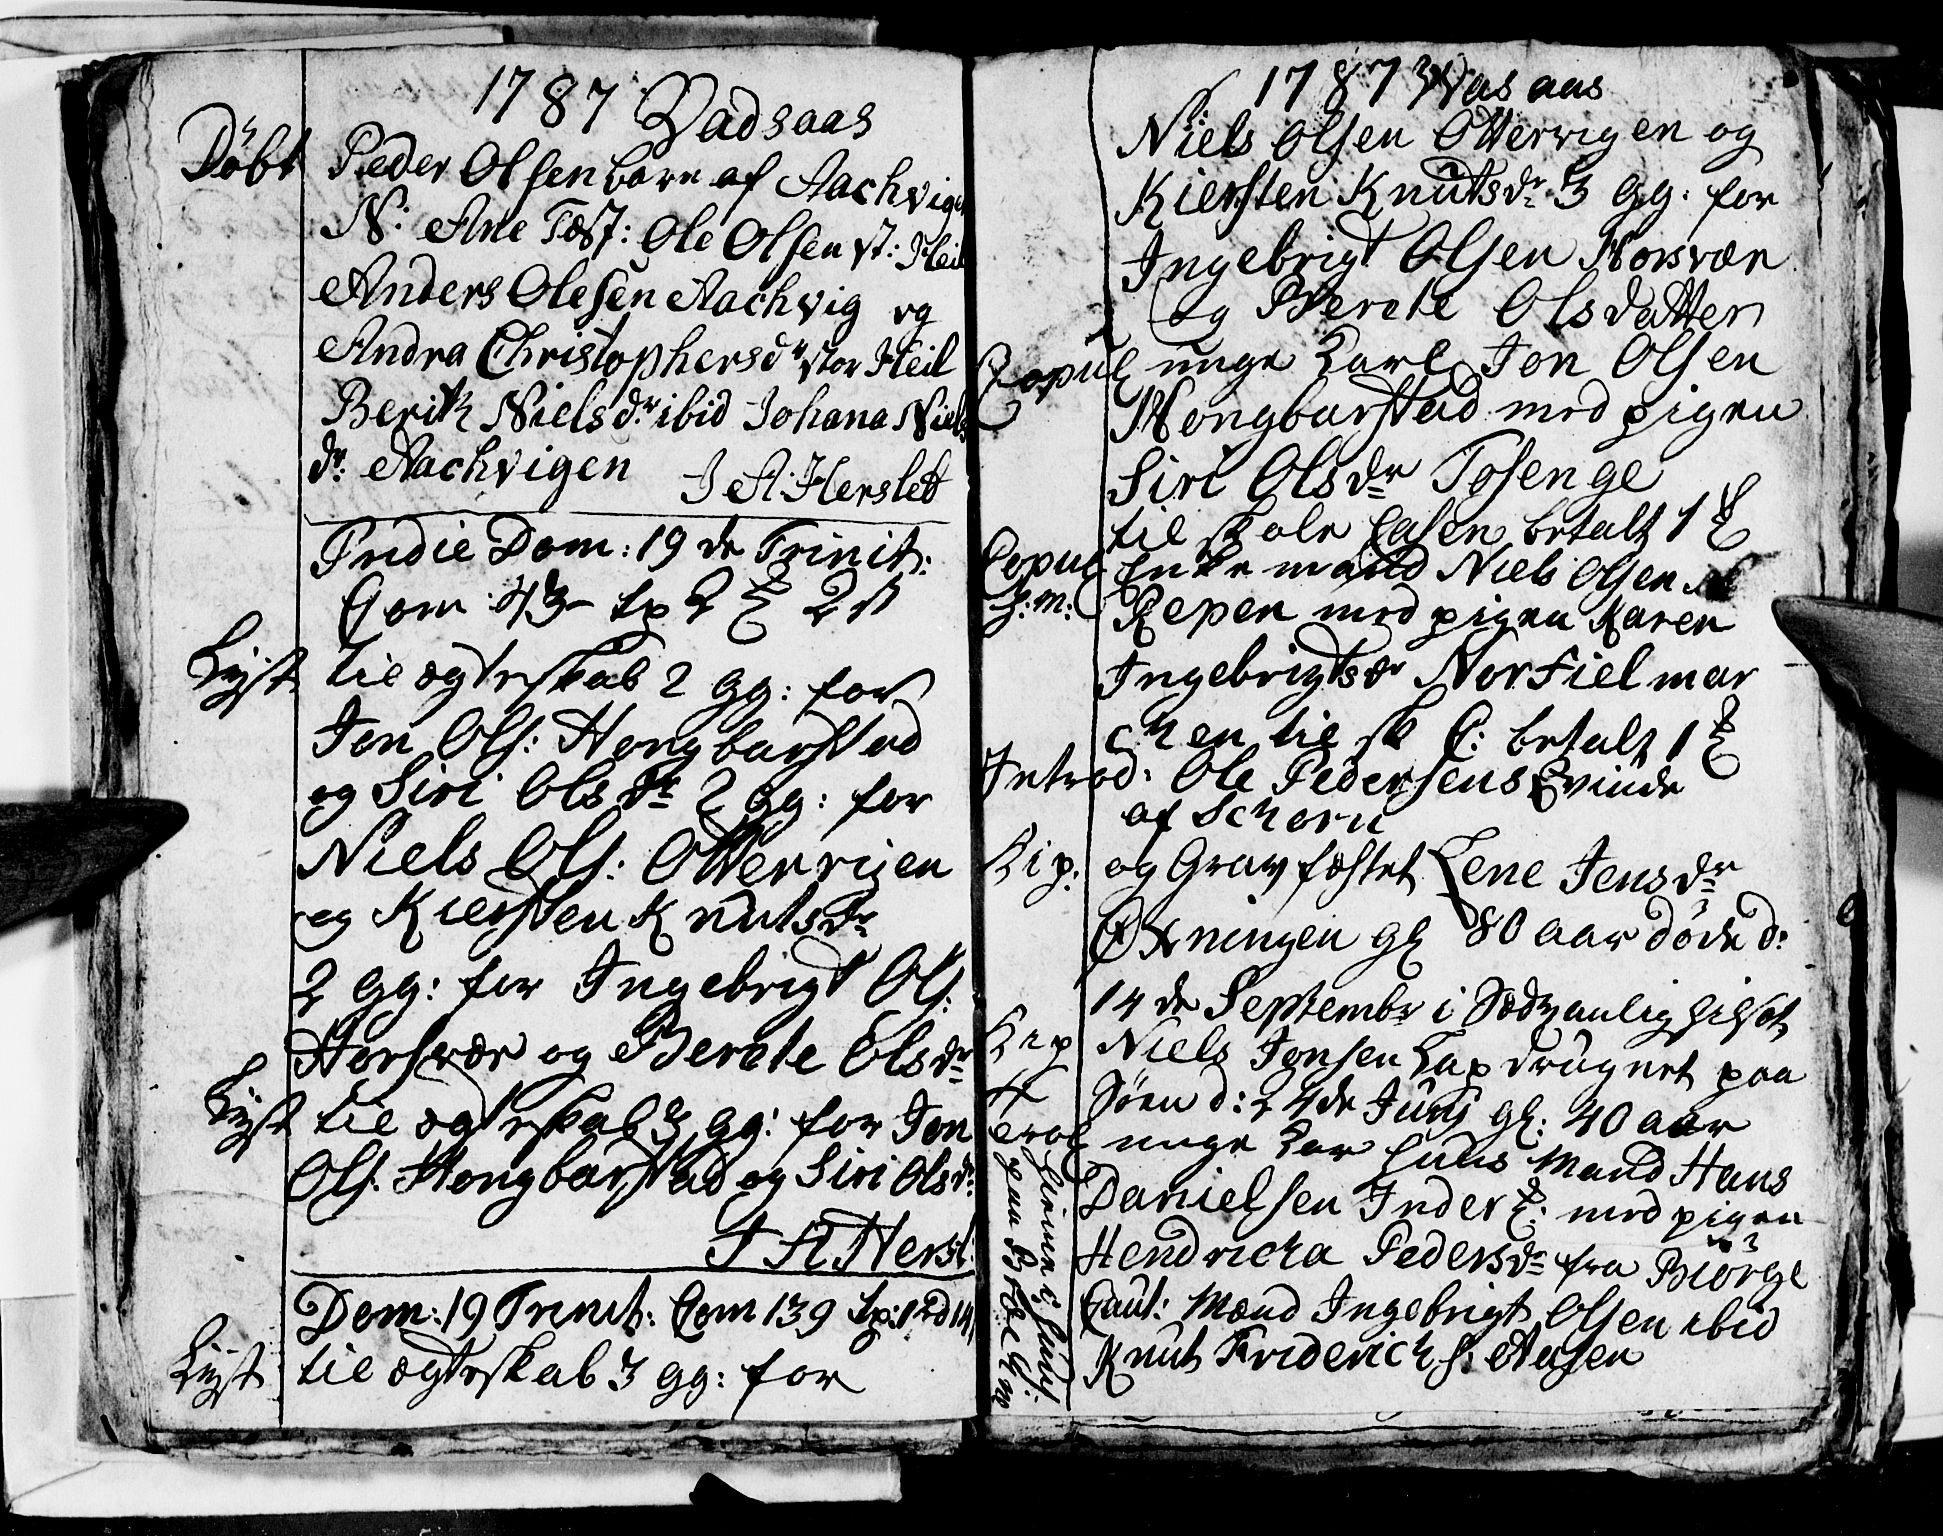 1787 Vadsaas
Döbt Peder Olsen barn af Aachvigen
N: Ane Test: Ole Olsen st: Heil
Anders Olesen Aachvig og
Andra Christophersdr stor Heil
Berith Nielsdr ibid Johana Niels
dr. Aachvigen J A: Herslet
Pridie Dom: 19 de Trinit:
Com 43 2 2
Lyst til ægteskab 2 gg: for
Jon Ols: Hongbarstad
og Siri Olsdr 2 gg: for
Niels Ols: Otterviien
og Kiersten Knutsdr
2 gg: for Ingebrigt Ols:
Horsvær og Berete Olsdr
Lyst til ægteskab 3 gg: for Jon
Ols: Hongbarstad og Siri Olsdr
J A Hersl:
Dom: 19 Trinit: Com 139
Lyst til ægteskab 3 gg: for
1787 Vasaas
Niels Olsen Ottervigen og
Kiersten Knutsdr 3 gg: for
Ingebrigt Olsen Horsvær
og Berete Olsdatter
Copul unge Karl Jon Olsen
Hongbarstad med pigen
Siri Olsdr Tosenge
til skole Casen betalt 1
Copul Enke mand Niels Olsen
h:m: Repen med pigen Karen
Ingebrigtsdr Norfielmar
chen til sk C: betalt 1
Introd: Ole Pedersens Qvinde
af Schorn
Lip: og Grav fæstet Lene Jensdr
Øxningen gl 80 aar döde d:
14 de Septembr i Sædvanlig
Lip Niels Jonsen Lap drugnet paa
Söen d: 24de Juny gl: 40 aar
Trol unge Kar Huus Mand Hans
Danielsen Inder: med pigen
Hendricha Pedersdr fra Biörge
Caut: Mænd Ingebrigt Olsen ibid
Knut Friderichs: Aasen
hiemme i huus:
paa